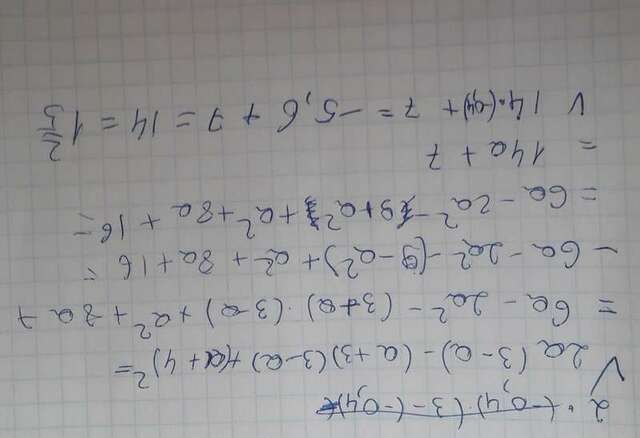 2·(-0,4)·(3-(-0,4)
2a(3-a)-(a+3)(3-a)+(a+4)²=
=6a-2a²-(3+a)·(3-a)+a²+8a+
-6a-2a²-(9-a²)+a²+8a+16=
=6a-2a²-9+a²+a²+8a+16=
=14a+7
√14·(-0,4)+7=-5,6+7=14=1⅖